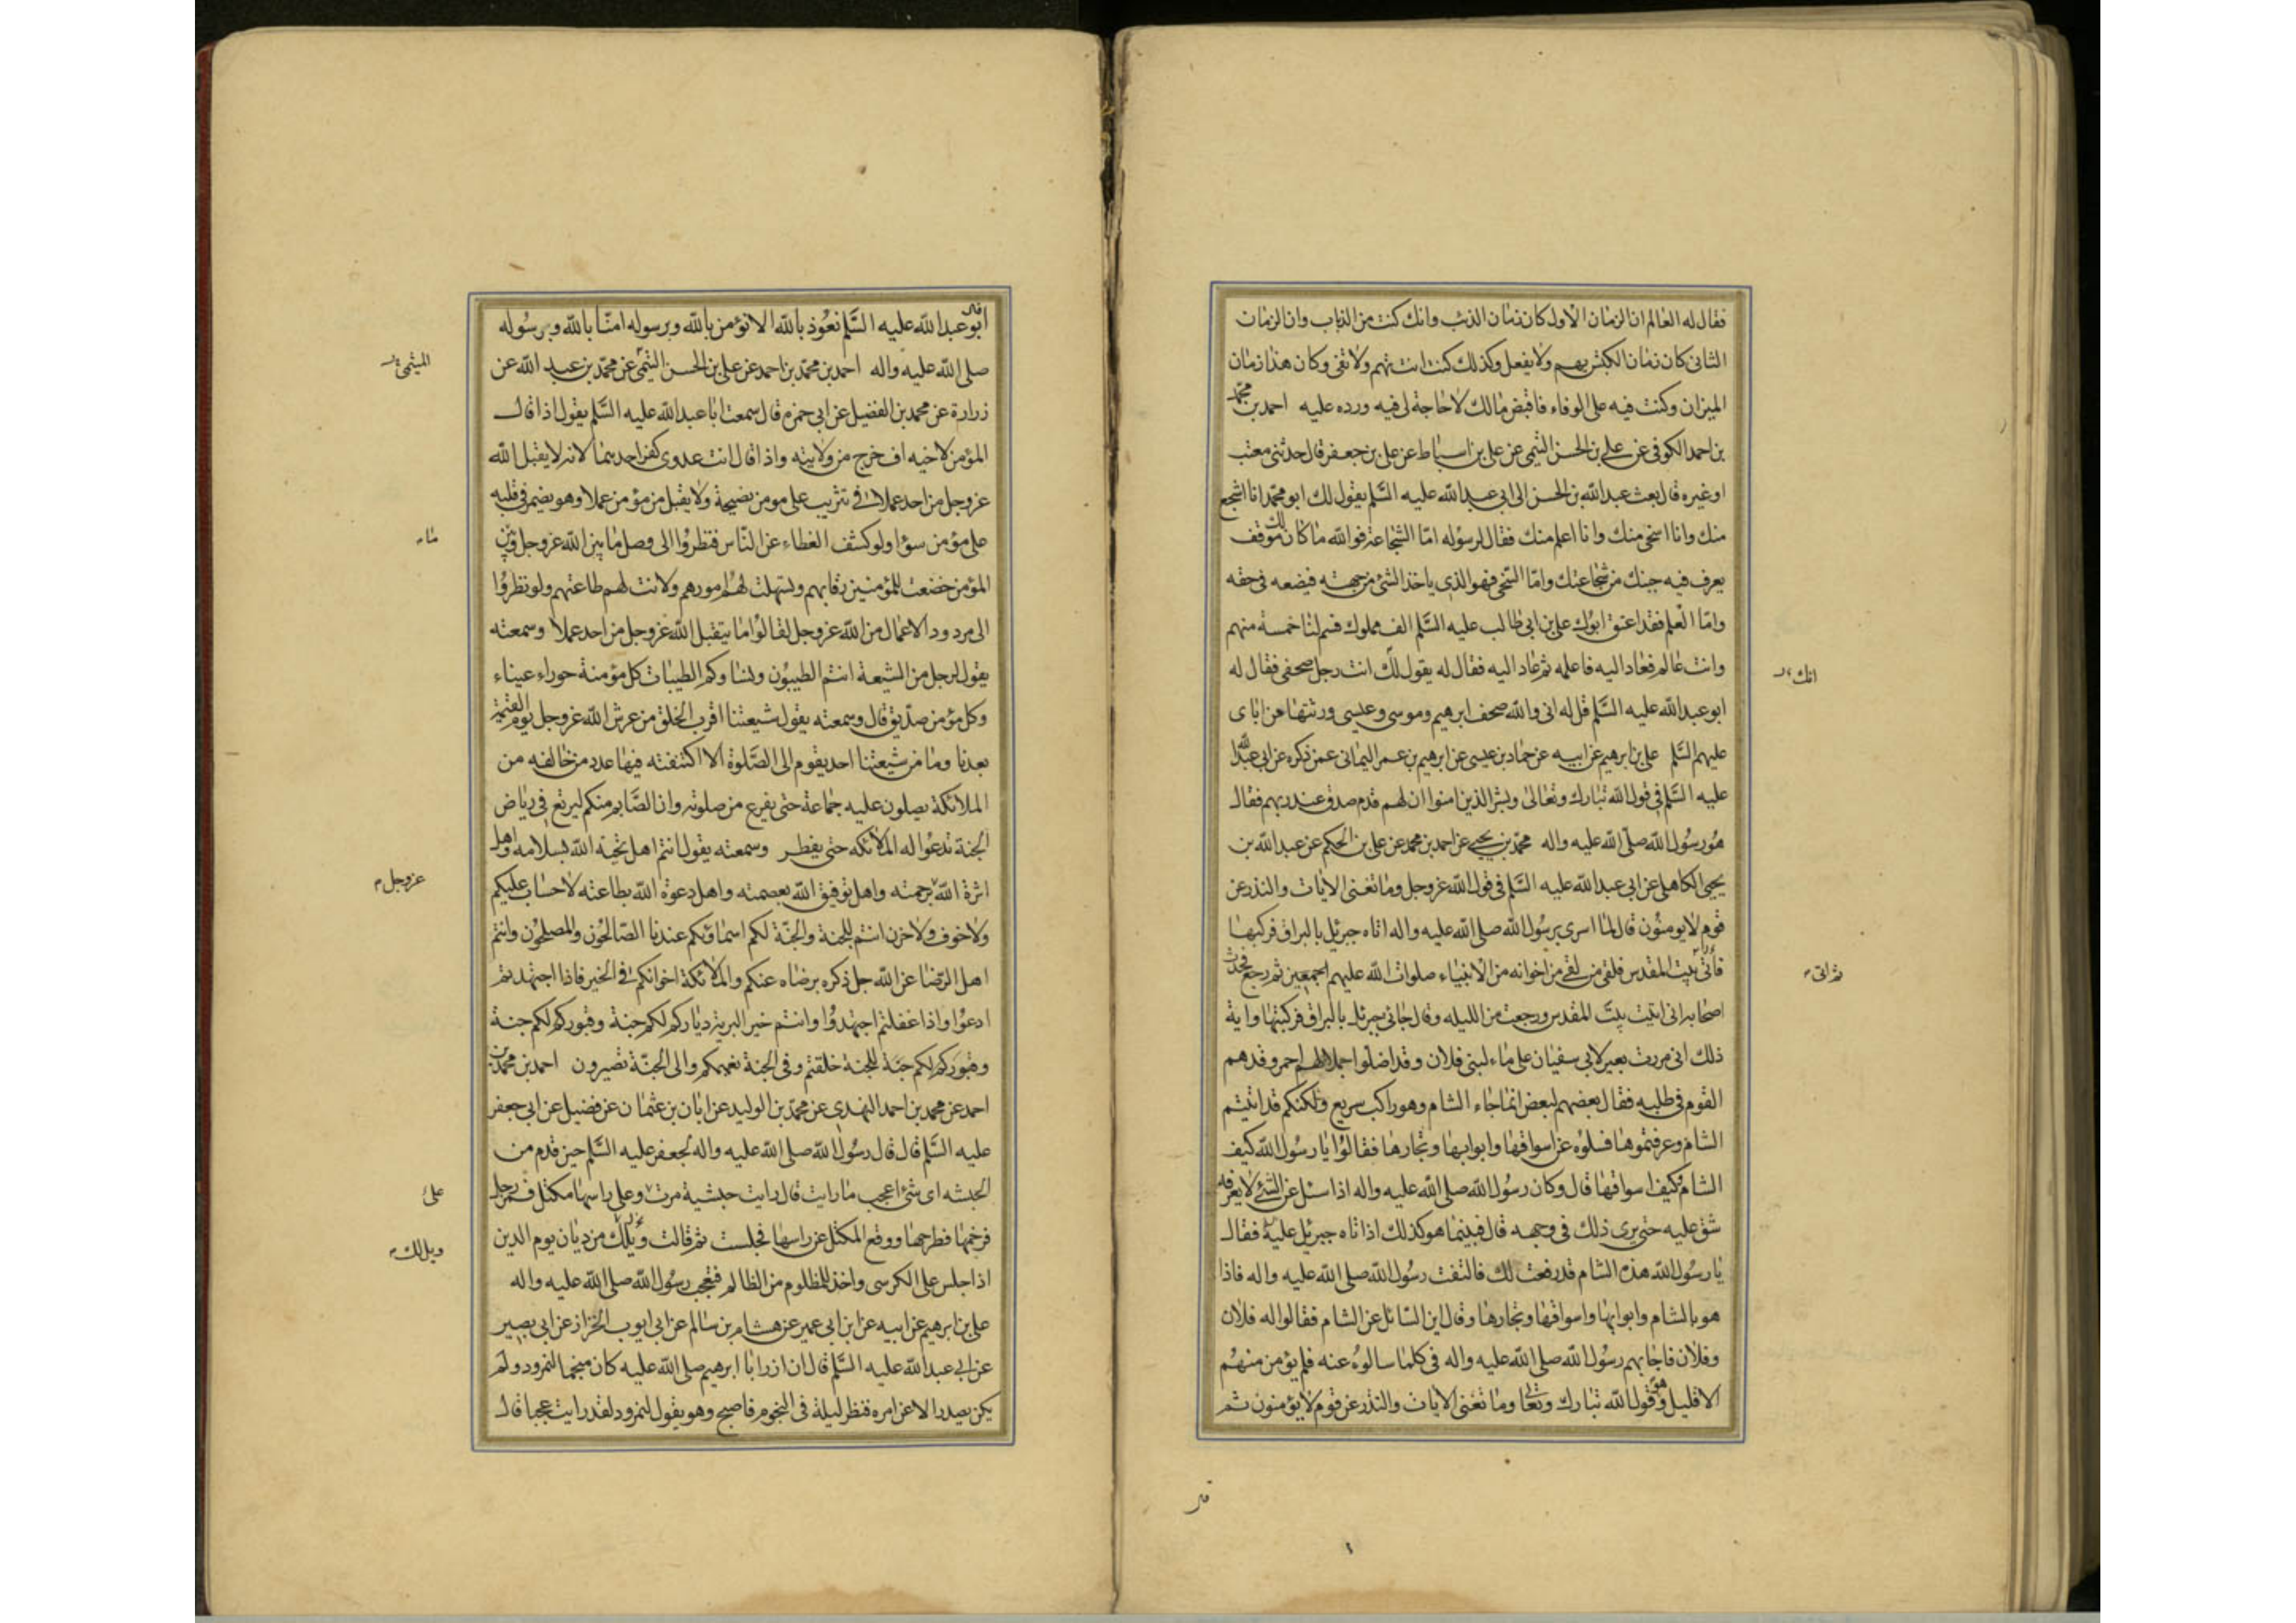 فقال له العالم ان الزمان الاول كان زمان الذئب وانك كنت من الذياب وان الزمان
الثانى كان زمان الكبش يهم ولا يفعل وكذلك كنت انت تهم ولا تفى وكان هذا زمان
الميزان وكنت فيه على الوفاء فاقبض مالك لا حاجة لى فيه ورده عليه احمد بن محمد
بن احمد الكوفى عن على بن الحسن التيمى عن على بن اسباط عن على بن جعفر قال حدثنى معتب
او غيره قال بعث عبدالله بن الحسن الى ابى عبدالله عليه السلم يقول لك ابو محمد انا اشجع
منك وانا اسخى منك وانا اعلم منك فقال لرسوله اما الشجاعة فوالله ما كان لك موقف
يعرف فيه جبنك من شجاعتك واما السخى فهو الذى ياخذ الشئ من جهته فيضعه فى حقه
واما العلم فقد اعتق ابوك على بن ابى طالب عليه السلم الف مملوك فسم لنا خمسة منهم
وانت عالم فعاد اليه فاعلمه ثم عاد اليه فقال له يقول لك انت رجل صحفى فقال له
انك
ابو عبدالله عليه السلم قل له انى والله صحف ابرهيم وموسى وعيسى ورثتها عن اباى
عليهم السلم على بن ابرهيم عن ابيه عن حماد بن عيسى عن ابرهيم بن عمر اليمانى عمن ذكره عن ابى عبدالله
عليه السلم فى قول الله تبارك وتعالى وبشر الذين امنوا ان لهم قدم صدق عند ربهم فقال
هو رسول الله صلى الله عليه واله محمد بن يحيى عن احمد بن محمد عن على بن الحكم عن عبدالله بن
يحيى الكاهلى عن ابى عبدالله عليه السلم فى قول الله عزوجل وما تغنى الايات والنذر عن
قوم لا يومنون قال لما اسرى برسول الله صلى الله عليه واله اتاه جبرئيل بالبراق فركبها
فأتى بيت المقدس فلقى من لقى من اخوانه من الانبياء صلوات الله عليهم اجمعين ثم رجع فحدث
اصحابه انى اتيت بيت المقدس ورجعت من الليله وقال جانى جبرئيل بالبراق فركبتها واية
ذلك انى مررت بعير لابى سفيان على ماء لبنى فلان وقد اضلوا جملا لهم احمر وقد هم
القوم فى طلبه فقال بعضهم لبعض انما جاء الشام وهو راكب سريع ولكنكم قد اتيتم
الشام وعرفتموها فسلوه عن اسواقها وابوابها وتجارها فقالوا يا رسول الله كيف
الشام وكيف اسواقها قال وكان رسول الله صلى الله عليه واله اذا سئل عن الشئ لا يعرفه
شق عليه حتى يرى ذلك فى وجهه قال فبينما هو كذلك اذا تاه جبرئيل عليه فقال
يا رسول الله هذه الشام قد رفعت لك فالتفت رسول الله صلى الله عليه واله فاذا
هو بالشام وابوابها واسواقها وتجارها وقال اين السائل عن الشام فقالوا له فلان
وفلان فاجابهم رسول الله صلى الله عليه واله فى كلما سالوه عنه فلم يؤمن منهم
الا قليل وهو قول الله تبارك وتعا وما تغنى الايات والنذر عن قوم لا يؤمنون ثم
قال
ابو عبدالله عليه السلم نعوذ بالله الا نؤمن بالله وبرسوله امنا بالله وبرسوله
صلى الله عليه واله احمد بن محمد بن احمد عن على بن الحسن التيمى عن محمد بن عبد الله عن
الميثمى
زرارة عن محمد بن الفضيل عن ابى حمزه قال سمعت ابا عبدالله عليه السلم يقول اذا قال
المؤمن لاخيه اف خرج من ولايته واذا قال انت عدوى كفر احدهما لانه لا يقبل الله
عزوجل من احد عملا فى تثريب على مومن نصيحة ولا يقبل من مؤمن عملا وهو يضمر فى قلبه
على مؤمن سؤا ولو كشف الغطاء عن الناس فنظروا الى وصل ما بين الله عزوجل وبين
المؤمن خضعت للمؤمنين رقابهم وتسهلت لهم امورهم ولانت لهم طاعتهم ولو نظروا
الى مردود الاعمال من الله عزوجل لقالوا ما يتقبل الله عزوجل من احد عملا وسمعته
يقول لرجل من الشيعة انتم الطيبون ونساوكم الطيبات كل مؤمنة حوراء عيناء
وكل مؤمن صديق قال وسمعته يقول شيعتنا اقرب الخلق من عرش الله عزوجل يوم القيمة
بعدنا وما من شيعتنا احد يقوم الى الصلوة الا اكتنفته فيها عدد من خالفه من
الملائكة يصلون عليه جماعة حتى يفرغ من صلوته وان الصايم منكم ليرتع فى رياض
الجنة تدعوا له الملائكه حتى يفطر وسمعته يقول انتم اهل تحية الله بسلامه واهل
اثرة الله برحمته واهل توفيق الله بعصمته واهل دعوة الله بطاعته لا حساب عليكم
عزوجل
ولا خوف ولا حزن انتم للجنة والجنة لكم اسماؤكم عندنا الصالحون والمصلحون وانتم
اهل الرضا عن الله جل ذكره برضاه عنكم والملائكة اخوانكم فى الخير فاذا اجتهدتم
ادعوا واذا غفلتم اجتهدوا وانتم خير البرية دياركم لكم جنة وقبوركم لكم جنة
وقبوركم لكم جنة للجنة خلقتم وفى الجنة نعيمكم والى الجنة تصيرون احمد بن محمد بن
احمد عن محمد بن احمد النهدى عن محمد بن الوليد عن ابان بن عثمان عن فضيل عن ابى جعفر
عليه السلم قال قال رسول الله صلى الله عليه واله لجعفر عليه السلم حين قدم من
الحبشه اى شئ اعجب ما رايت قال رايت حبشية مرت وعلى راسها مكتل فمر رجل
فزحمها فطرحها ووقع المكتل عن راسها فجلست ثم قالت ويلك من ديان يوم الدين
ويل لك
اذا جلس على الكرسى واخذ للمظلوم من الظالم فتعجب رسول الله صلى الله عليه واله
على بن ابرهيم عن ابيه عن ابن ابى عمير عن هشام بن سالم عن ابى ايوب الخزاز عن ابى بصير
عن ابى عبدالله عليه السلم قال ان ازر ابا ابرهيم صلى الله عليه كان منجما لنمرود ولم
يكن يصدر الا عن امره فنظر ليلة فى النجوم فاصبح وهو يقول لنمرود لقد رايت عجبا قال